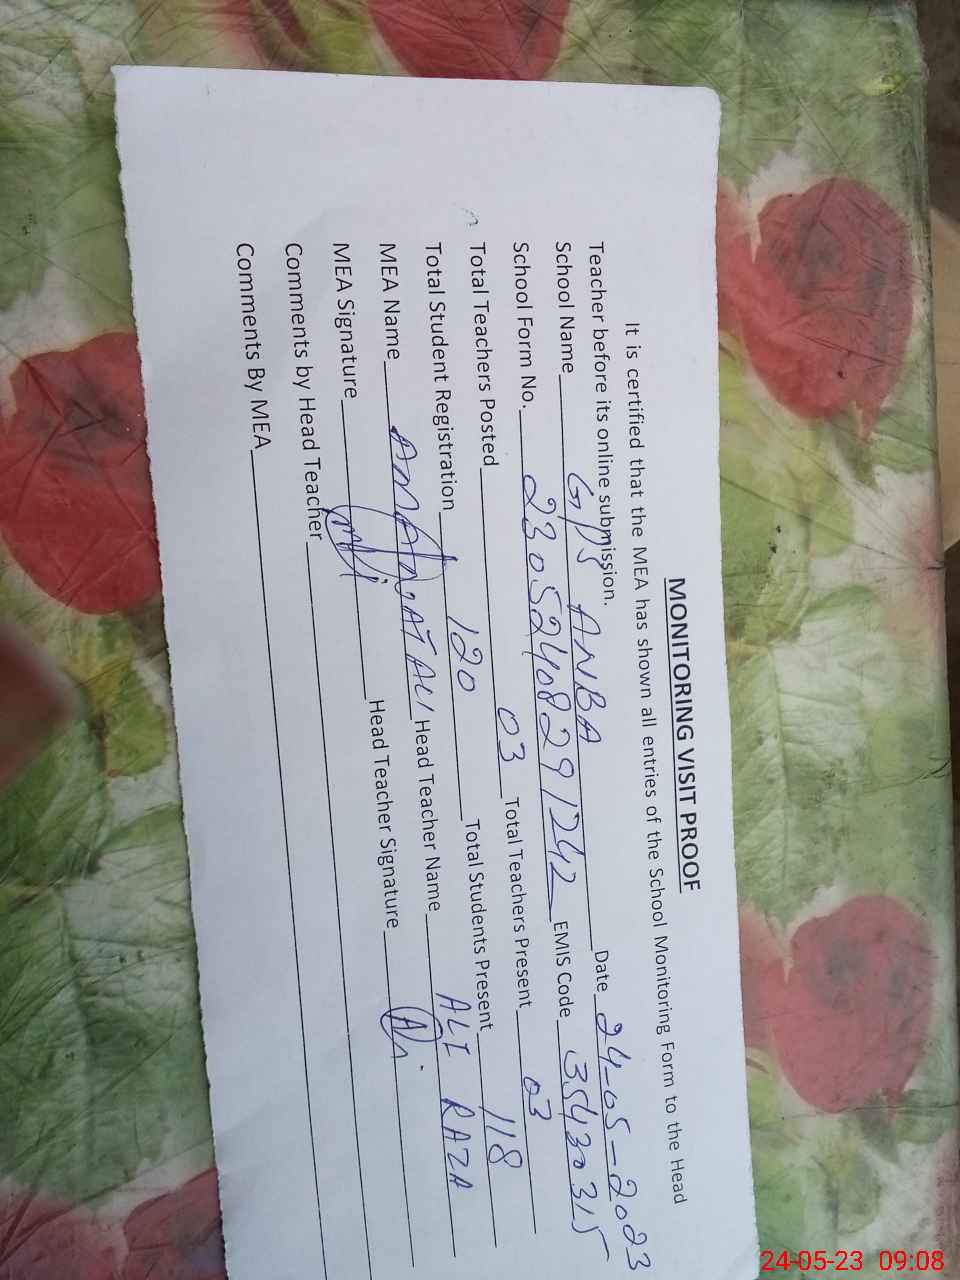 MONITORING VISIT PROOF
It is certified that the MEA has shown all entries of the School Monitoring Form to the Head
Teacher before its online submission.
School Name GPS ANBA Date 24-05-2023
School Form No. 23052408291242 EMIS Code 35430315
Total Teachers Posted 03 Total Teachers Present 03
Total Student Registration 120 Total Students Present 118
MEA Name AMANAT ALI Head Teacher Name ALI RAZA
MEA Signature Head Teacher Signature
Comments by Head Teacher
Comments By MEA
24-05-23 09:08